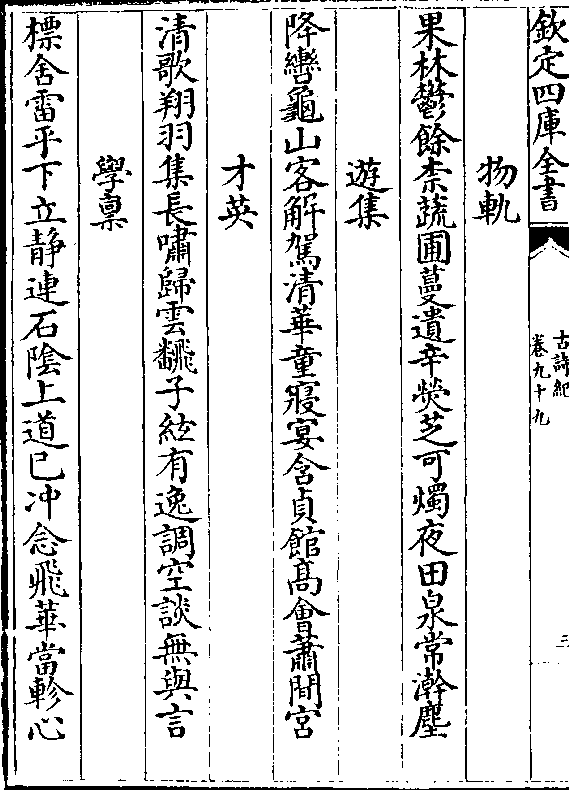 欽定四庫全書
古詩紀
卷九十九
三
物軌
果林鬱餘柰蔬圃蔓遺辛熒芝可燭夜田泉常瀚塵
遊集
降轡龜山客解駕清華童寢宴含貞館高會蕭閒宮
才英
清歌翔羽集長嘯歸雲飜子絃有逸調空談無與言
學稟
標舍雷平下立靜連石陰上道已冲念飛華當軫心